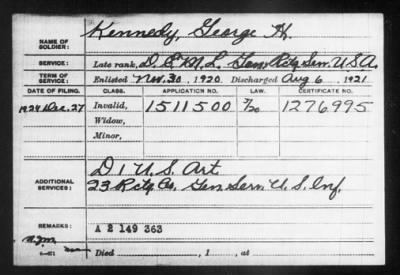 NAME OF SOLDIER: Kennedy, George H.
SERVICE: Late rank, D. E. M. L. Gen. Rctg Serv. U.S.A.
TERM OF SERVICE: Enlisted Nov. 30, 1920 Discharged Aug 6, 1921
DATE OF FILING. CLASS. APPLICATION NO. LAW. CERTIFICATE NO.
1924 Dec. 27 Invalid, 1511500 7/20 1276995
Widow,
Minor,
ADDITIONAL SERVICES: D 1 U.S. Art.
23 Rctg Co. Gen Serv. U.S. Inf.
REMARKS: A 2 149 363
Died , 1 , at